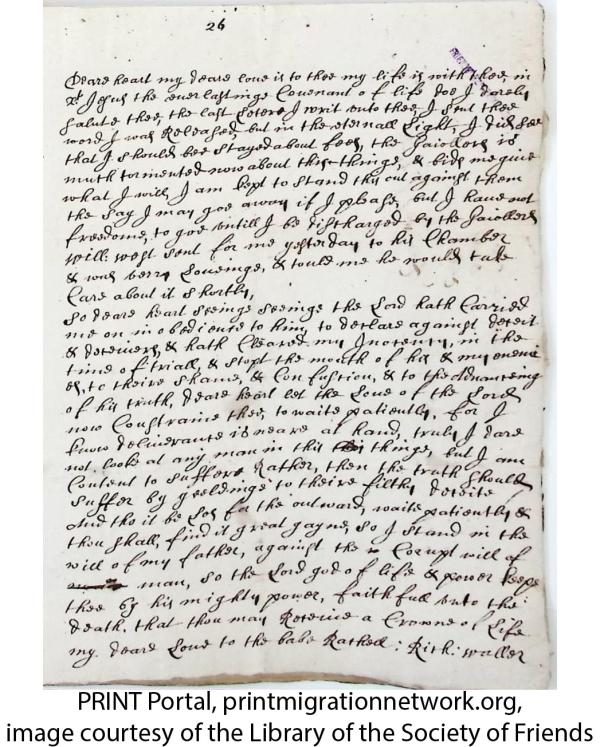 26
Deare heart my deare love is to thee my life is with thee, in
Jesus the everlastinge Covenant of life doe I dearly
salute thee, the last Letere I writ unto thee, I sent thee
word I was Released, but in the eternall Light, I did see
that I should bee stayed about fees, the Jaiollers is
much tormented now about this thinge, & bids me give
what I will, I am kept to stand this out against them
the say I may goe away if I please, but I have not
freedome, to goe untill I be discharged by the Jaiollers
will: west sent for me yesterday to his Chamber
& was verry Loveinge, & tould me he would take
Care about it shortly,
So deare heart seeinge the Lord hath Carried
me on in obedience to him, to declare against deceit
& deceivers, & hath Cleared my Inocency, in the
time of triall, & stopt the mouth of his & my enemi
es, to theire shame, & Confustion, & to the advanceing
of his truth, deare heart let the Love of the Lord
now Constraine thee, to waite patiently, for I
know deliverance is neare at hand, truly I dare
not, looke at any man in this things, but I am
Content to suffere Rather, then the truth should
suffer by yeeldinge to theire filthy deceite
And tho it be Los for the outward, waite patiently &
thou shall, find it great gayne, so I stand in the
will of my father, against the Corrupt will of
man, so the Lord god of life & power keepe
thee by his mighty power, faithfull unto the
death. that thou may Receive a Crowne of Life
my deare Love to the babe Rachell: Rich: waller
PRINT Portal, printmigrationnetwork.org,
image courtesy of the Library of the Society of Friends